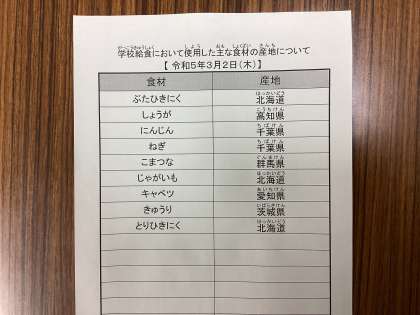 学校給食において使用した主な食材の産地について
【 令和5年3月2日(木)】
食材 産地
ぶたひきにく 北海道
しょうが 高知県
にんじん 千葉県
ねぎ 千葉県
こまつな 群馬県
じゃがいも 北海道
キャベツ 愛知県
きゅうり 茨城県
とりひきにく 北海道